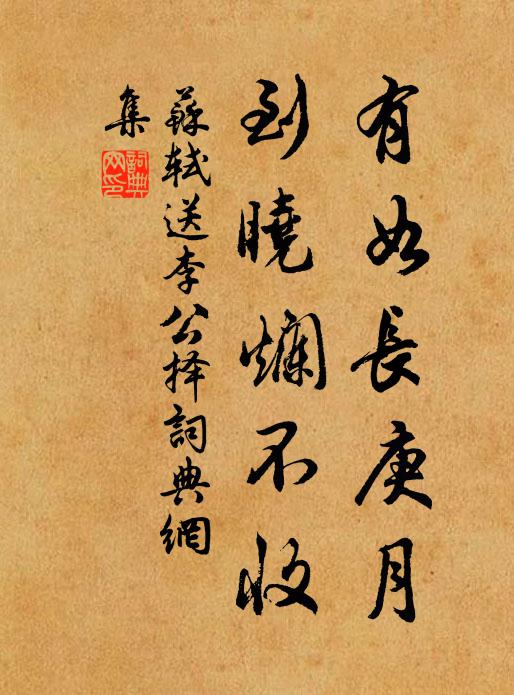 有如長庚月
到曉爛不收
蘇軾送李公择詞典網
集
詞典网印